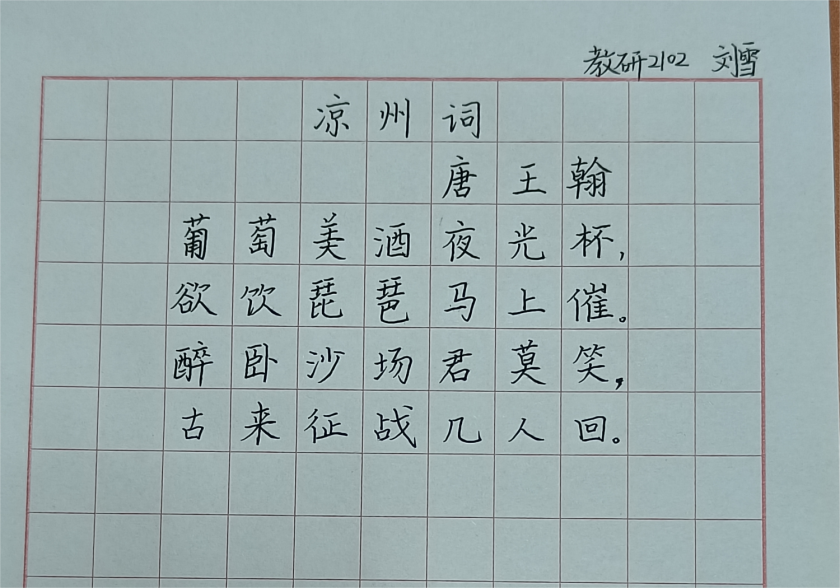 教研2102 刘雪
凉州词
唐王翰
葡萄美酒夜光杯,
欲饮琵琶马上催。
醉卧沙场君莫笑,
古来征战几人回。